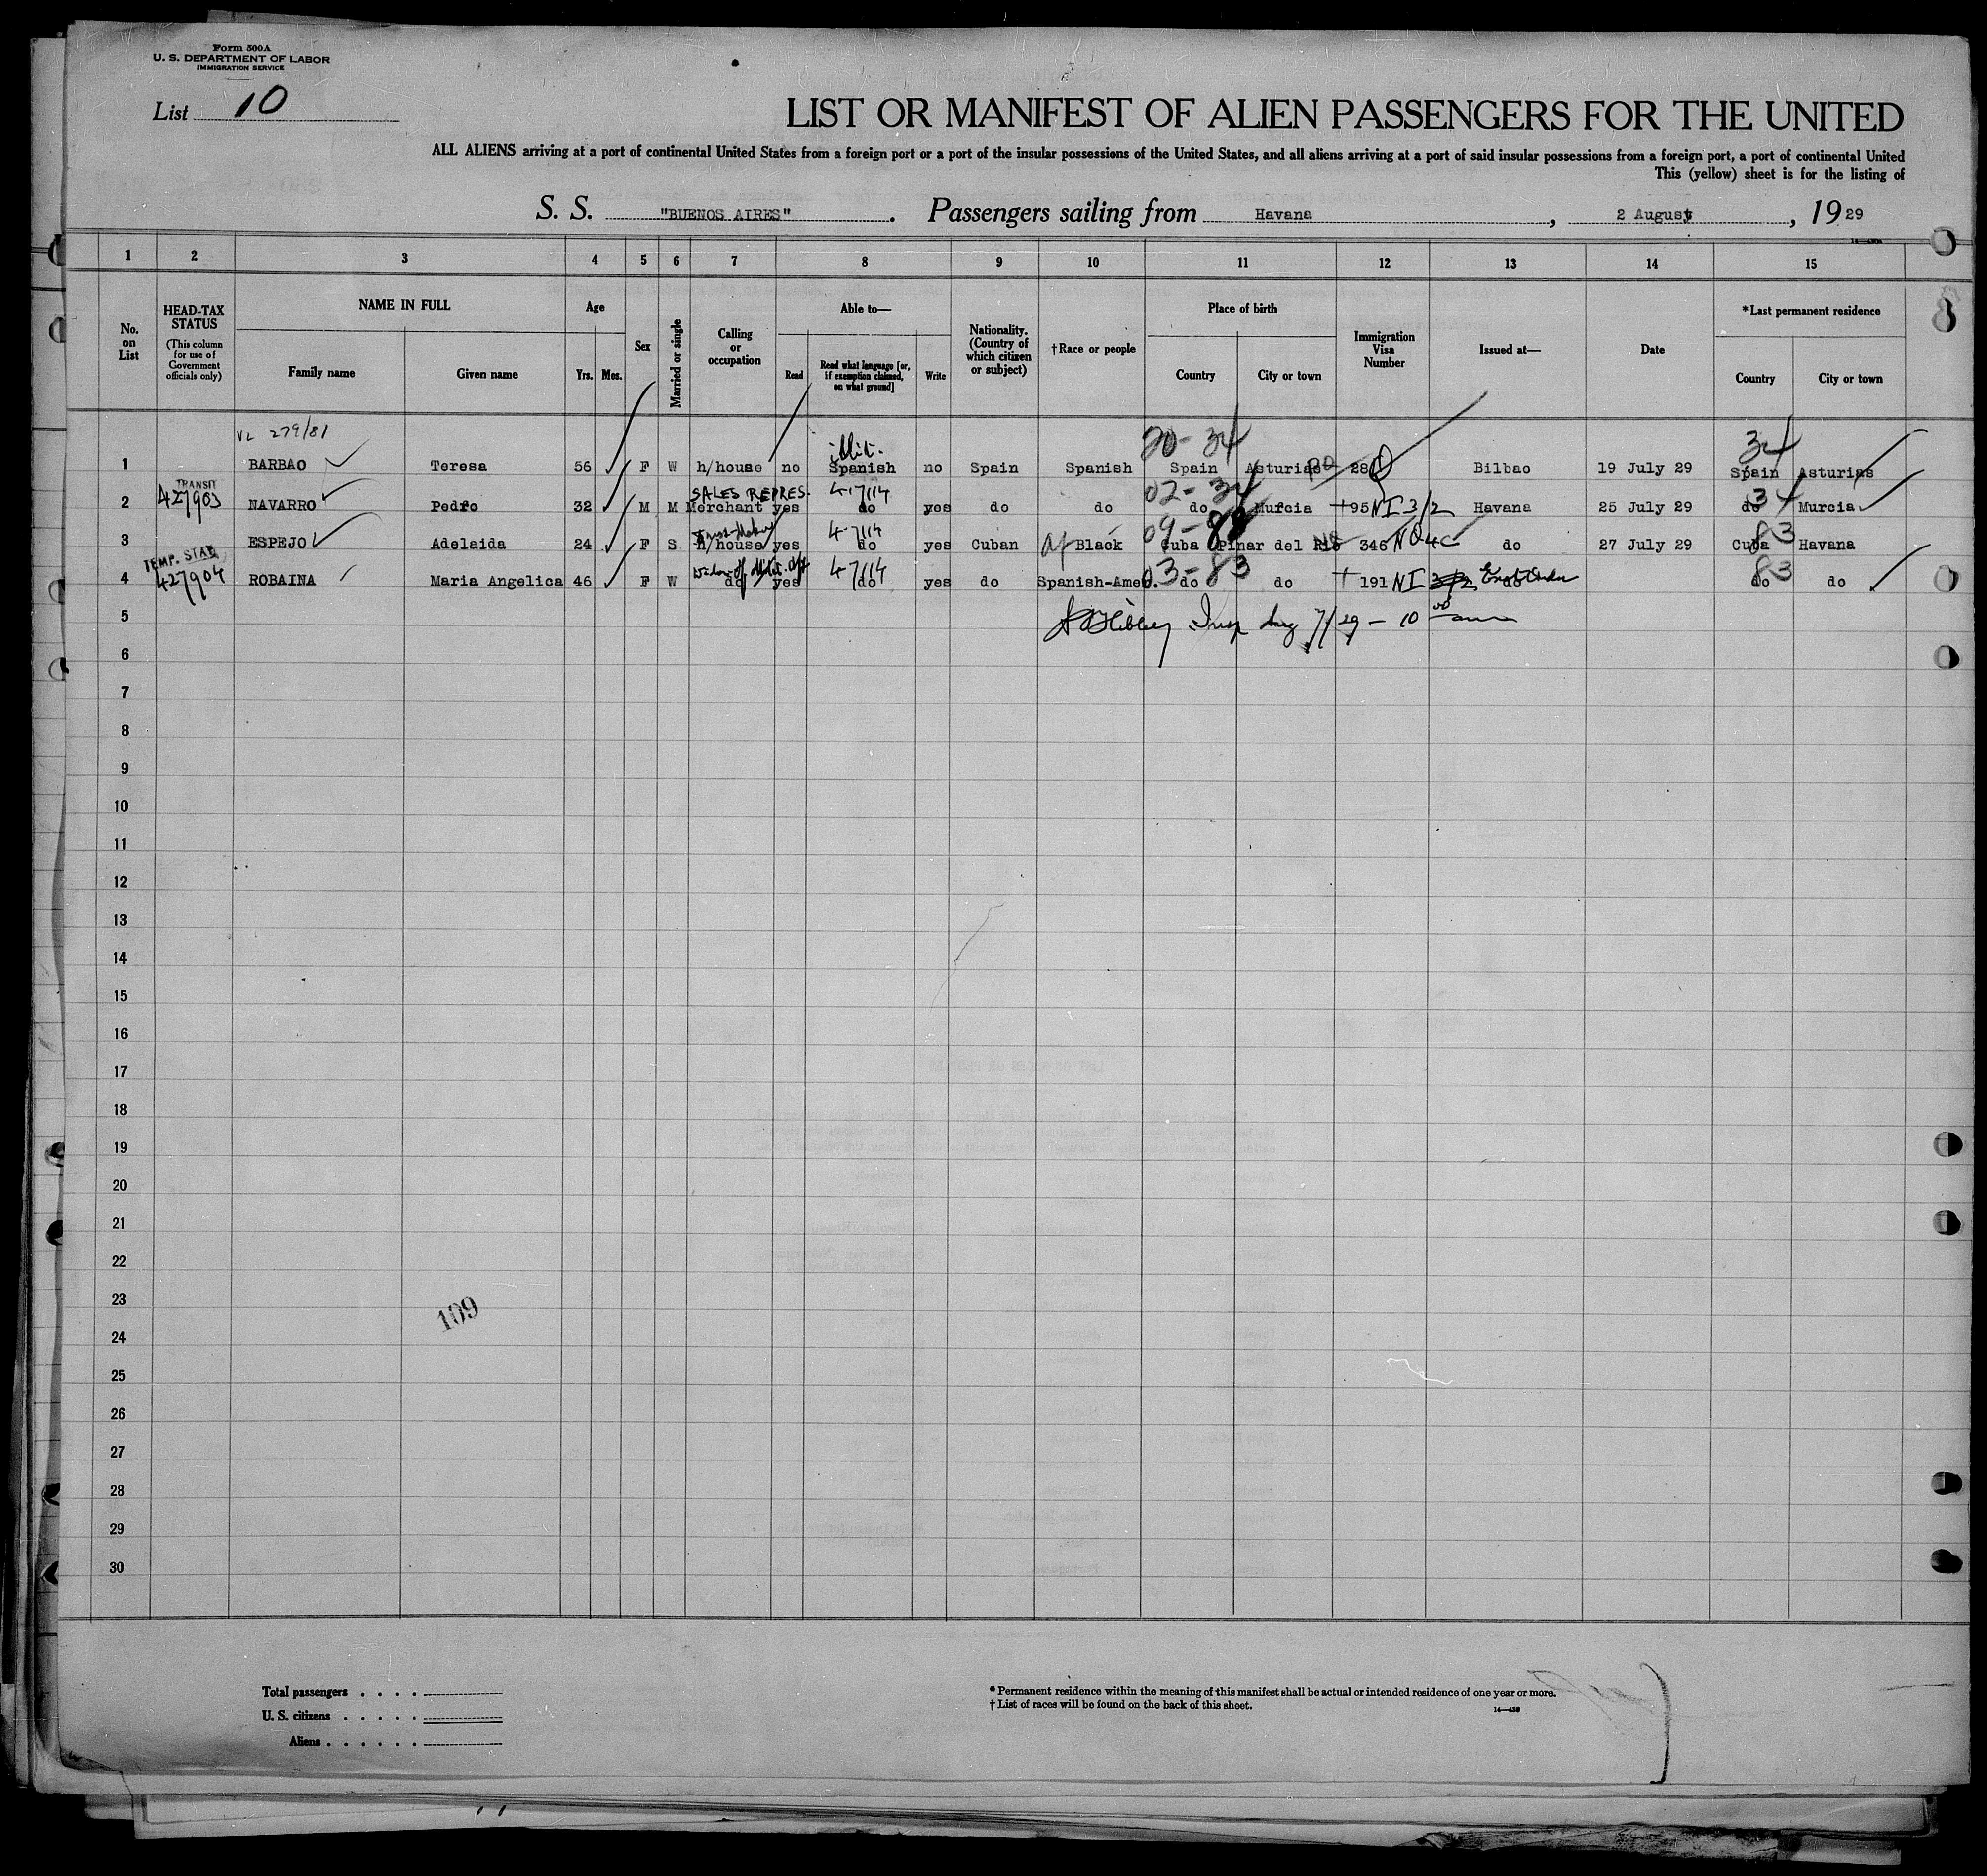 Form 500A
U. S. DEPARTMENT OF LABOR
IMMIGRATION SERVICE
List 10
LIST OR MANIFEST OF ALIEN PASSENGERS FOR THE UNITED
ALL ALIENS arriving at a port of continental United States from a foreign port or a port of the insular possessions of the United States, and all aliens arriving at a port of said insular possessions from a foreign port, a port of continental United
This (yellow) sheet is for the listing of
S. S. "BUENOS AIRES". Passengers sailing from Havana, 2 August, 1929
1 2 3 4 5 6 7 8 9 10 11 12 13 14 15
No. on List
HEAD-TAX STATUS
(This column for use of Government officials only)
NAME IN FULL
Family name Given name
Age
Yrs. Mos.
Sex
Married or single
Calling or occupation
Able to—
Read
Read what language [or, if exemption claimed, on what ground]
Write
Nationality. (Country of which citizen or subject)
†Race or people
Place of birth
Country City or town
Immigration Visa Number
Issued at—
Date
*Last permanent residence
Country City or town
279/81 illit. 20-34 34
1 BARBAO Teresa 56 F W h/house no Spanish no Spain Spanish Spain Asturias 28 Bilbao 19 July 29 Spain Asturias
TRANSIT 427903 SALES REPRES. 4-7/14 02-34 34
2 NAVARRO Pedro 32 M M Merchant yes do yes do do do Murcia 95 NI 3/2 Havana 25 July 29 do Murcia
4-7/14 09-83 83
3 ESPEJO Adelaida 24 F S h/house yes do yes Cuban Af Black Cuba Pinar del Rio 346 NQ 4c do 27 July 29 Cuba Havana
TEMP. STAY 427904 4-7/14 03-83 83
4 ROBAINA Maria Angelica 46 F W do yes do yes do Spanish-Amer. do do 191 NI 3/2 do do do
Insp Aug 7/29 - 10 00 am
5
6
7
8
9
10
11
12
13
14
15
16
17
18
19
20
21
22
23
24
25
26
27
28
29
30
109
Total passengers . . . .
U. S. citizens . . . . .
Aliens . . . . . .
* Permanent residence within the meaning of this manifest shall be actual or intended residence of one year or more.
† List of races will be found on the back of this sheet.